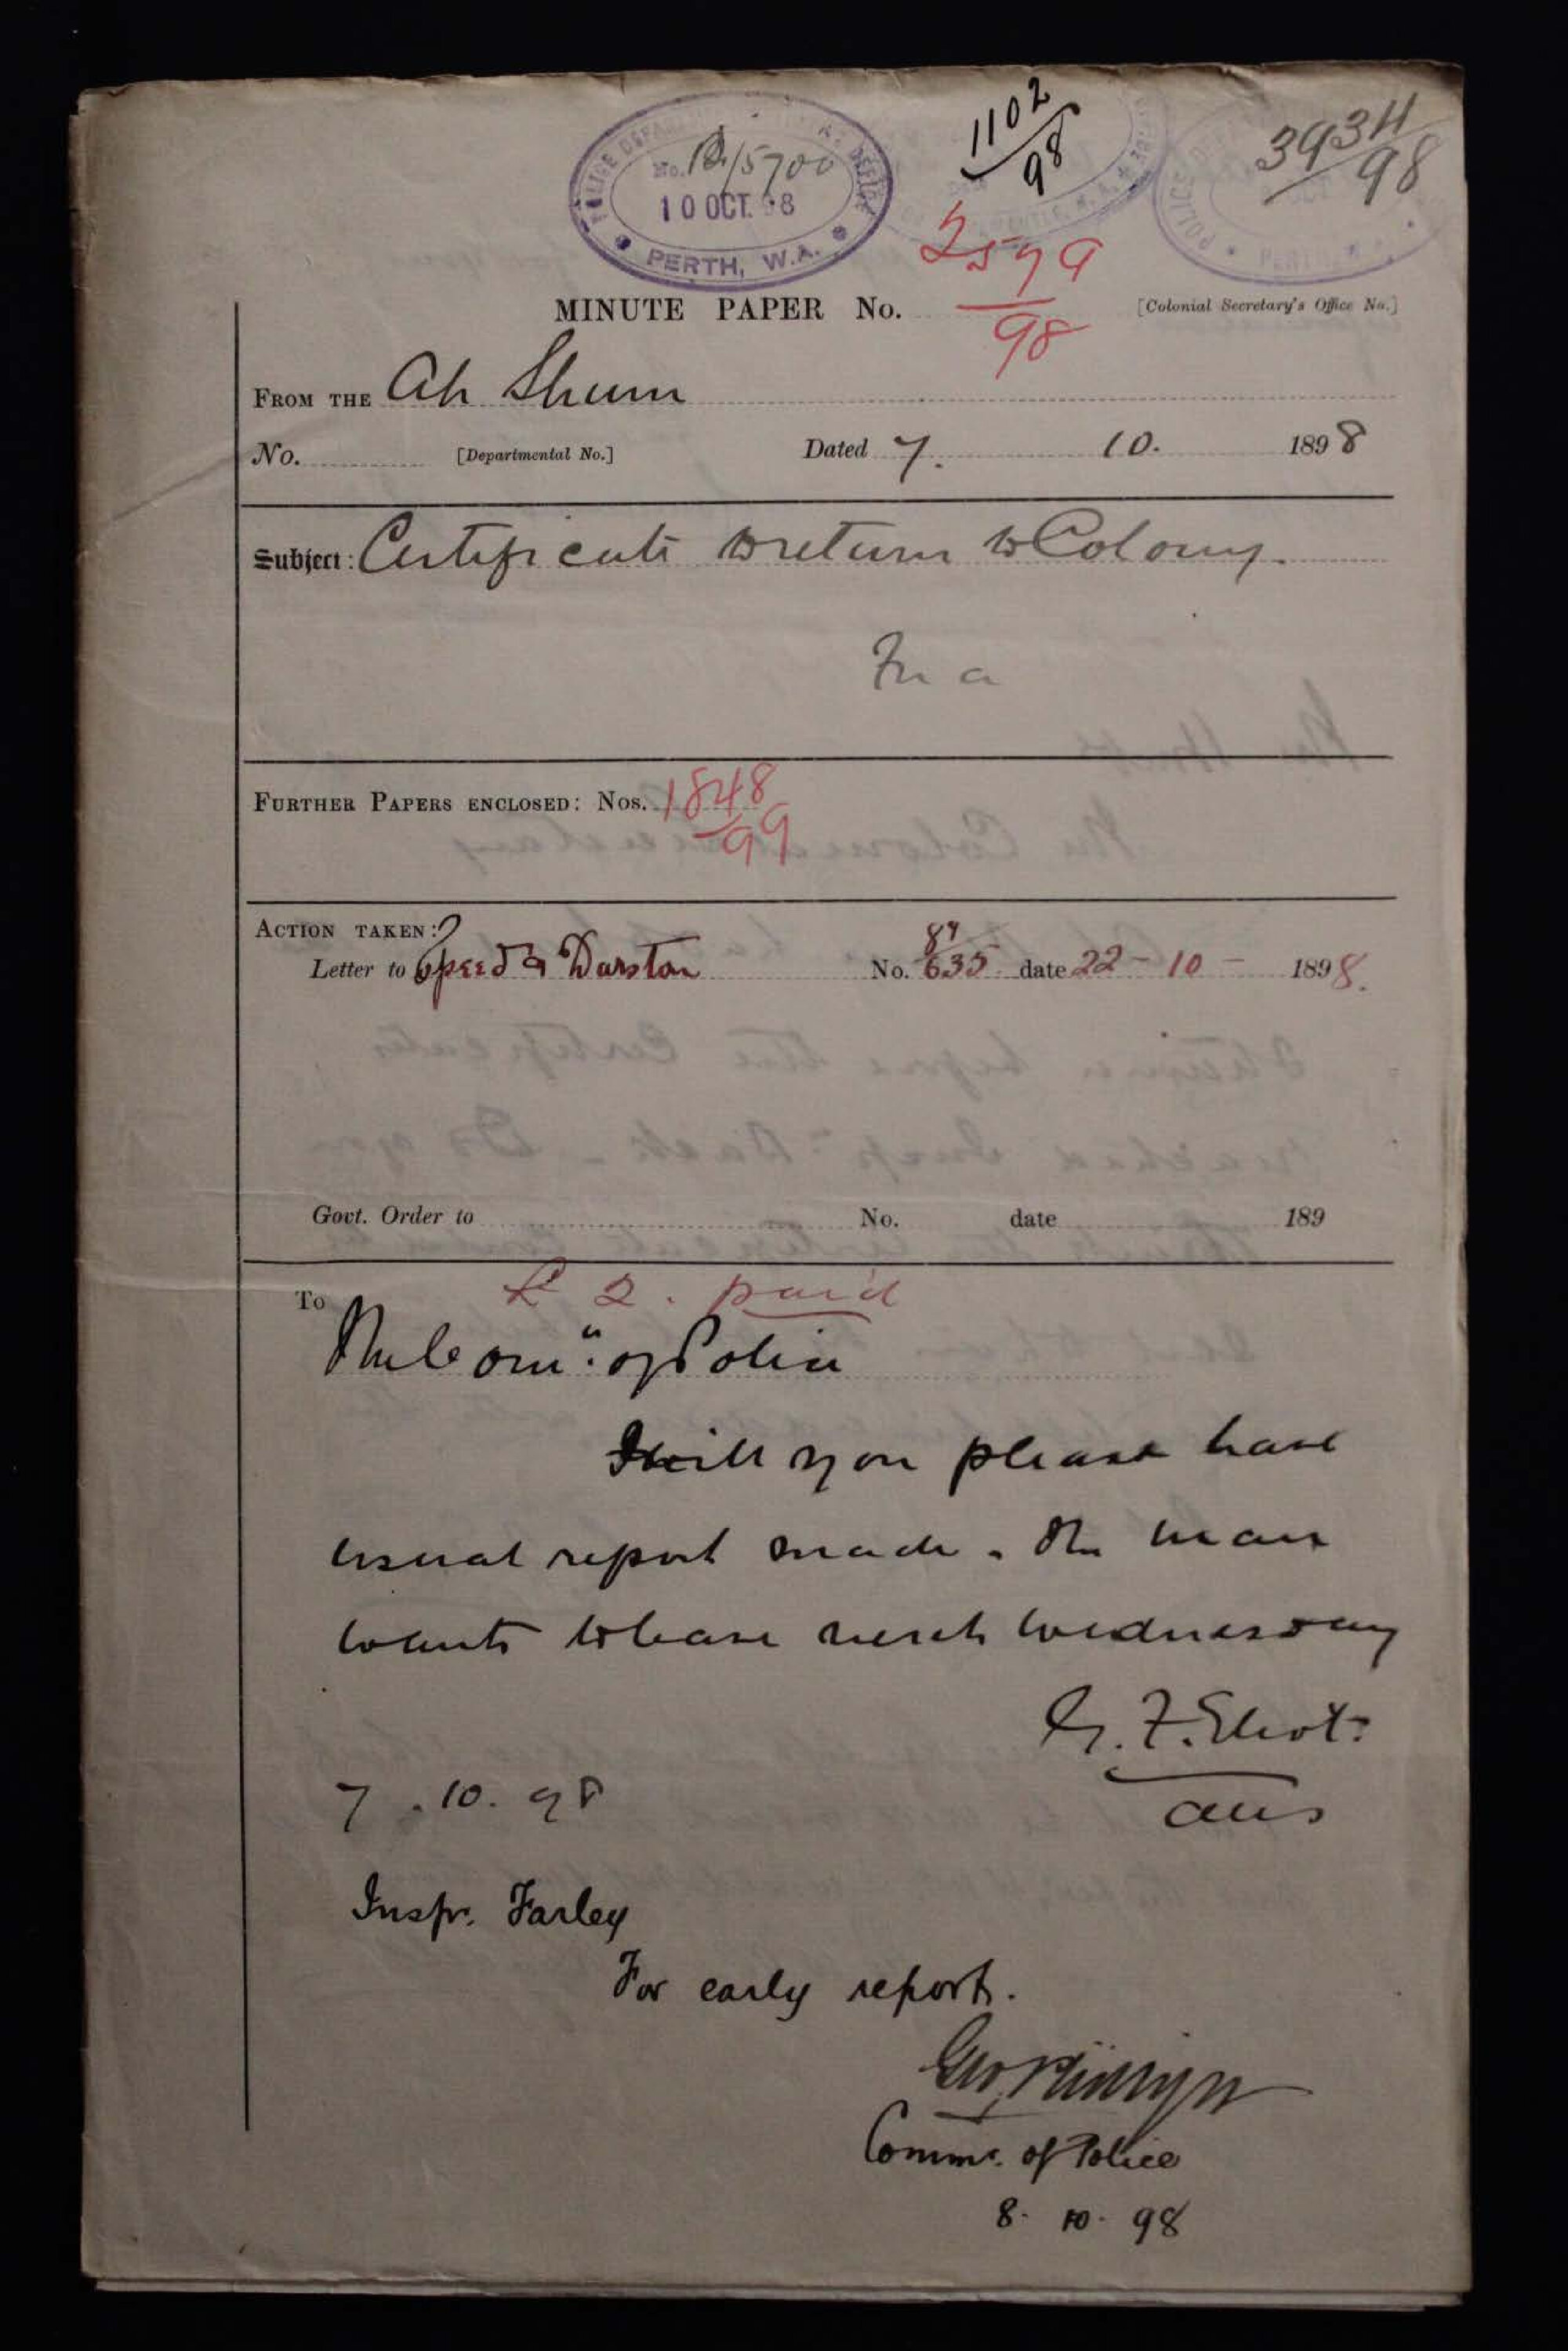 No. 12/5700
10 OCT. 98
PERTH, W.A.
1102/98
3934/98
POLICE
MINUTE PAPER No. 2579/98
[Colonial Secretary's Office No.]
FROM THE Ah Shum
No. [Departmental No.] Dated 7. 10. 1898
Subject: Certificate to return to Colony.
FURTHER PAPERS ENCLOSED: Nos. 1848/99
ACTION TAKEN:
Letter to Speed & Durston No. 89/635 date 22-10-1898.
Govt. Order to No. date 189
£2. paid
To
The Comr. of Police
Will you please have
usual report made. The man
wants to leave next Wednesday
G. F. Eliot
7.10.98
Inspr. Farley
For early report.
Geo Phillips
Commr. of Police
8. 10. 98